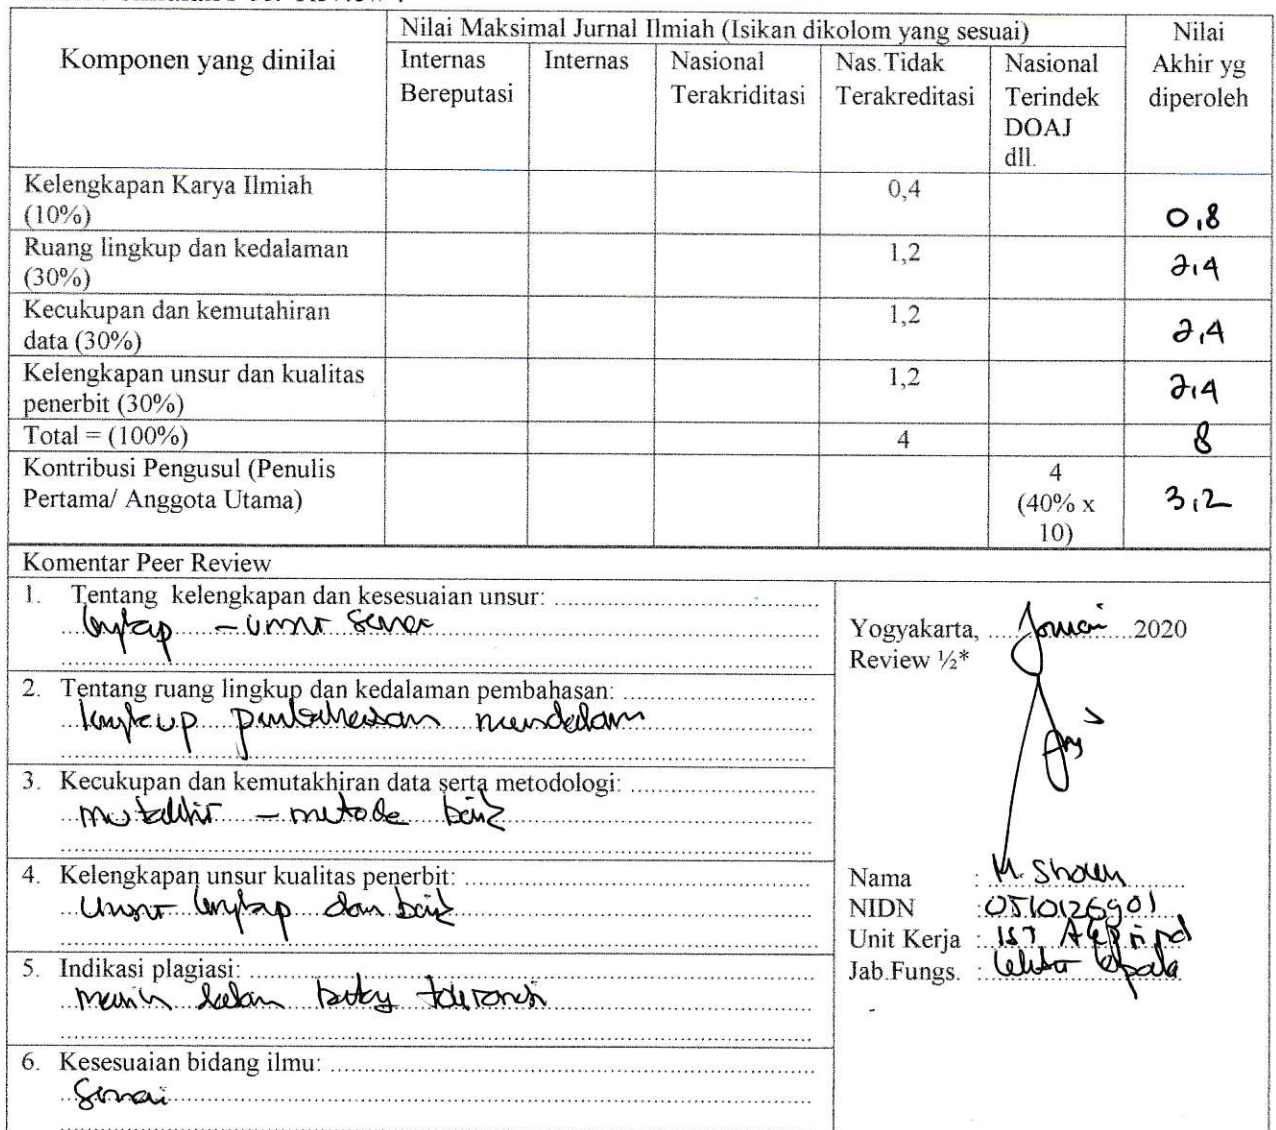 Nilai Maksimal Jurnal Ilmiah (Isikan dikolom yang sesuai)
Nilai Akhir yg diperoleh
Komponen yang dinilai
Internas Bereputasi
Internas
Nasional Terakriditasi
Nas.Tidak Terakreditasi
Nasional Terindek DOAJ dll.
Kelengkapan Karya Ilmiah
(10%)
0,4
0,8
Ruang lingkup dan kedalaman
(30%)
1,2
2,4
Kecukupan dan kemutahiran
data (30%)
1,2
2,4
Kelengkapan unsur dan kualitas
penerbit (30%)
1,2
2,4
Total = (100%)
4
8
Kontribusi Pengusul (Penulis
Pertama/ Anggota Utama)
4
(40% x
10)
3,2
Komentar Peer Review
1. Tentang kelengkapan dan kesesuaian unsur:
lengkap – unsur sesuai
2. Tentang ruang lingkup dan kedalaman pembahasan:
lingkup pembahasan mendalam
3. Kecukupan dan kemutakhiran data serta metodologi:
mutakhir – metode baik
4. Kelengkapan unsur kualitas penerbit:
Unsur lengkap dan baik
5. Indikasi plagiasi:
masih dalam batas toleransi
6. Kesesuaian bidang ilmu:
Sesuai
Yogyakarta, Januari 2020
Review ½*
Nama : M. Sholeh
NIDN : 0510126901
Unit Kerja : IST AKPRIND
Jab.Fungs. : Lektor Kepala